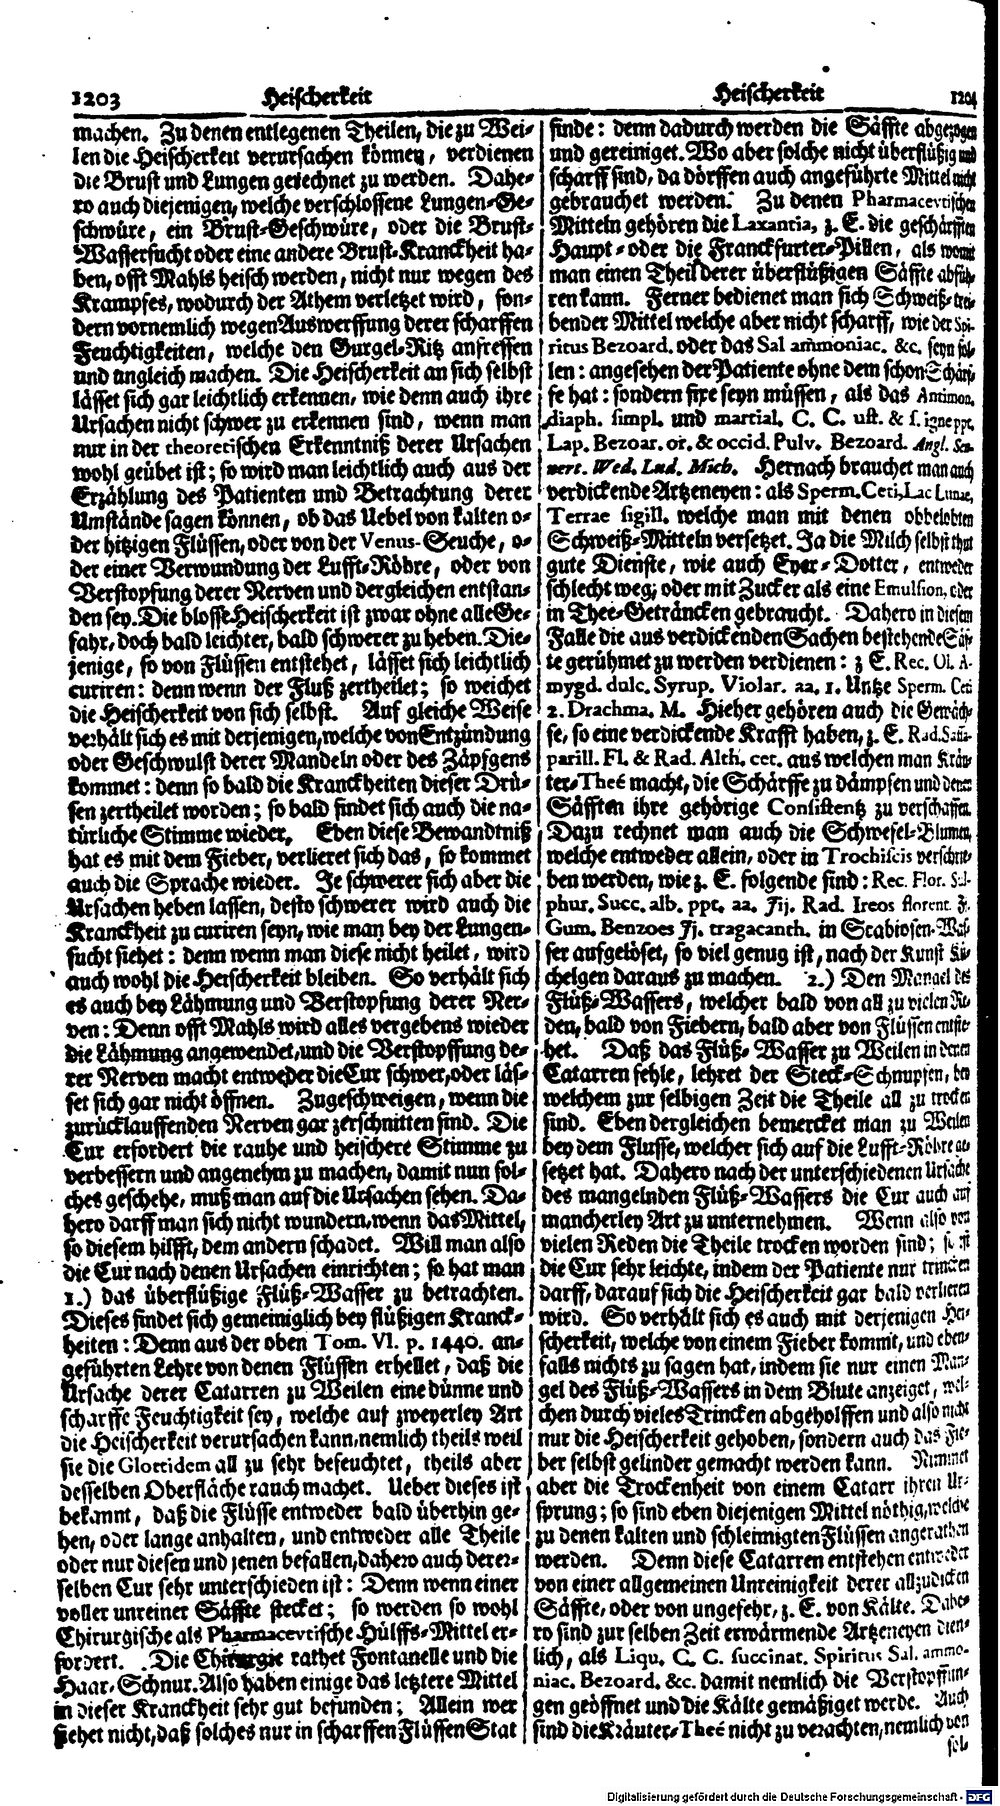 1203 Heischerkeit
Heischerkeit 1204
machen. Zu denen entlegenen Theilen, die zu Wei-
len die Heischerkeit verursachen können, verdienen
die Brust und Lungen gerechnet zu werden. Dahe-
ro auch diejenigen, welche verschlossene Lungen-Ge-
schwüre, ein Brust-Geschwüre, oder die Brust-
Wassersucht oder eine andere Brust-Kranckheit ha-
ben, offt Mahls heisch werden, nicht nur wegen des
Krampfes, wodurch der Athem verletzet wird, son-
dern vornemlich wegen Auswerffung derer scharffen
Feuchtigkeiten, welche den Gurgel-Ritz anfressen
und ungleich machen. Die Heischerkeit an sich selbst
lässet sich gar leichtlich erkennen, wie denn auch ihre
Ursachen nicht schwer zu erkennen sind, wenn man
nur in der theoretischen Erkenntniß derer Ursachen
wohl geübet ist; so wird man leichtlich auch aus der
Erzählung des Patienten und Betrachtung derer
Umstände sagen können, ob das Uebel von kalten o-
der hitzigen Flüssen, oder von der Venus-Seuche, o-
der einer Verwundung der Lufft-Röhre, oder von
Verstopfung derer Nerven und dergleichen entstan-
den sey. Die blosse Heischerkeit ist zwar ohne alle Ge-
fahr, doch bald leichter, bald schwerer zu heben. Die-
jenige, so von Flüssen entstehet, lässet sich leichtlich
curiren: denn wenn der Fluß zertheilet; so weichet
die Heischerkeit von sich selbst. Auf gleiche Weise
verhält sich es mit derjenigen, welche von Entzündung
oder Geschwulst derer Mandeln oder des Zäpfgens
kommet: denn so bald die Kranckheiten dieser Drü-
sen zertheilet worden; so bald findet sich auch die na-
türliche Stimme wieder. Eben diese Bewandtniß
hat es mit dem Fieber, verlieret sich das, so kommet
auch die Sprache wieder. Je schwerer sich aber die
Ursachen heben lassen, desto schwerer wird auch die
Kranckheit zu curiren seyn, wie man bey der Lungen-
sucht siehet: denn wenn man diese nicht heilet, wird
auch wohl die Heischerkeit bleiben. So verhält sich
es auch bey Lähmung und Verstopfung derer Ner-
ven: Denn offt Mahls wird alles vergebens wieder
die Lähmung angewendet, und die Verstopffung de-
rer Nerven macht entweder die Cur schwer, oder läs-
set sich gar nicht öffnen. Zugeschweigen, wenn die
zurücklauffenden Nerven gar zerschnitten sind. Die
Cur erfordert die rauhe und heischere Stimme zu
verbessern und angenehm zu machen, damit nun sol-
ches geschehe, muß man auf die Ursachen sehen. Da-
hero darff man sich nicht wundern, wenn das Mittel,
so diesem hilfft, dem andern schadet. Will man also
die Cur nach denen Ursachen einrichten; so hat man
1.) das überflüßige Flüß-Wasser zu betrachten.
Dieses findet sich gemeiniglich bey flüßigen Kranck-
heiten: Denn aus der oben Tom. VI. p. 1440. an-
geführten Lehre von denen Flüssen erhellet, daß die
Ursache derer Catarren zu Weilen eine dünne und
scharffe Feuchtigkeit sey, welche auf zweyerley Art
die Heischerkeit verursachen kann, nemlich theils weil
sie die Glottidem all zu sehr befeuchtet, theils aber
desselben Oberfläche rauch machet. Ueber dieses ist
bekannt, daß die Flüsse entweder bald überhin ge-
hen, oder lange anhalten, und entweder alle Theile
oder nur diesen und jenen befallen, dahero auch derer-
selben Cur sehr unterschieden ist: Denn wenn einer
voller unreiner Säffte stecket; so werden so wohl
Chirurgische als Pharmacevtische Hülffs-Mittel er-
fordert. Die Chirurgie rathet Fontanelle und die
Haar-Schnur. Also haben einige das letztere Mittel
in dieser Kranckheit sehr gut befunden; Allein wer
siehet nicht, daß solches nur in scharffen Flüssen Stat
finde: denn dadurch werden die Säffte abgezogen
und gereiniget. Wo aber solche nicht überflüßig und
scharff sind, da dörffen auch angeführte Mittel nicht
gebrauchet werden. Zu denen Pharmacevtischen
Mitteln gehören die Laxantia, z. E. die geschärfften
Haupt- oder die Franckfurter-Pillen, als womit
man einen Theil derer überflüßigen Säffte abfüh-
ren kann. Ferner bedienet man sich Schweiß-trei-
bender Mittel welche aber nicht scharff, wie der Spi-
ritus Bezoard. oder das Sal ammoniac. &c. seyn sol-
len: angesehen der Patiente ohne dem schon Schärf-
fe hat: sondern fixe seyn müssen, als das Antimon.
diaph. simpl. und martial. C. C. ust. & s. igne ppt.
Lap. Bezoar. or. & occid. Pulv. Bezoard. Angl. Sen-
nert. Wed. Lud. Mich. Hernach brauchet man auch
verdickende Artzeneyen: als Sperm. Ceti, Lac Lunae,
Terrae sigill. welche man mit denen obbelobten
Schweiß-Mitteln versetzet. Ja die Milch selbst thut
gute Dienste, wie auch Eyer-Dotter, entweder
schlecht weg, oder mit Zucker als eine Emulsion, oder
in Thee-Geträncken gebraucht. Dahero in diesem
Falle die aus verdickenden Sachen bestehende Säf-
te gerühmet zu werden verdienen: z E. Rec. Ol. A-
mygd. dulc. Syrup. Violar. aa. 1. Untze Sperm. Ceti
2. Drachma. M. Hieher gehören auch die Gewäch-
se, so eine verdickende Krafft haben, z. E. Rad. Sassa-
parill. Fl. & Rad. Alth. cet. aus welchen man Kräu-
ter-Theé macht, die Schärffe zu dämpfen und denen
Säfften ihre gehörige Consistentz zu verschaffen.
Dazu rechnet man auch die Schwefel-Blumen,
welche entweder allein, oder in Trochiscis verschrie-
ben werden, wie z. E. folgende sind: Rec. Flor. Sul-
phur. Succ. alb. ppt. aa. ʒij. Rad. Ireos florent. ʒ.
Gum. Benzoes ʒj. tragacanth. in Scabiosen-Was-
ser aufgelöset, so viel genug ist, nach der Kunst Kü-
chelgen daraus zu machen. 2.) Den Mangel des
Flüß-Wassers, welcher bald von all zu vielen Re-
den, bald von Fiebern, bald aber von Flüssen entste-
het. Daß das Flüß-Wasser zu Weilen in denen
Catarren fehle, lehret der Steck-Schnupfen, bey
welchem zur selbigen Zeit die Theile all zu trocken
sind. Eben dergleichen bemercket man zu Weilen
bey dem Flusse, welcher sich auf die Lufft-Röhre ge-
setzet hat. Dahero nach der unterschiedenen Ursache
des mangelnden Flüß-Wassers die Cur auch auf
mancherley Art zu unternehmen. Wenn also von
vielen Reden die Theile trocken worden sind; so ist
die Cur sehr leichte, indem der Patiente nur trincken
darff, darauf sich die Heischerkeit gar bald verlieren
wird. So verhält sich es auch mit derjenigen Hei-
scherkeit, welche von einem Fieber kommt, und eben-
falls nichts zu sagen hat, indem sie nur einen Man-
gel des Flüß-Wassers in dem Blute anzeiget, wel-
chen durch vieles Trincken abgeholffen und also nicht
nur die Heischerkeit gehoben, sondern auch das Fie-
ber selbst gelinder gemacht werden kann. Nimmet
aber die Trockenheit von einem Catarr ihren Ur-
sprung; so sind eben diejenigen Mittel nöthig, welche
zu denen kalten und schleimigten Flüssen angerathen
werden. Denn diese Catarren entstehen entweder
von einer allgemeinen Unreinigkeit derer allzudicken
Säffte, oder von ungefehr, z. E. von Kälte. Dahe-
ro sind zur selben Zeit erwärmende Artzeneyen dien-
lich, als Liqu. C. C. succinat. Spiritus Sal. ammo-
niac. Bezoard. &c. damit nemlich die Verstopffun-
gen geöffnet und die Kälte gemäßiget werde. Auch
sind die Kräuter-Theé nicht zu verachten, nemlich von
sol-
Digitalisierung gefördert durch die Deutsche Forschungsgemeinschaft - DFG